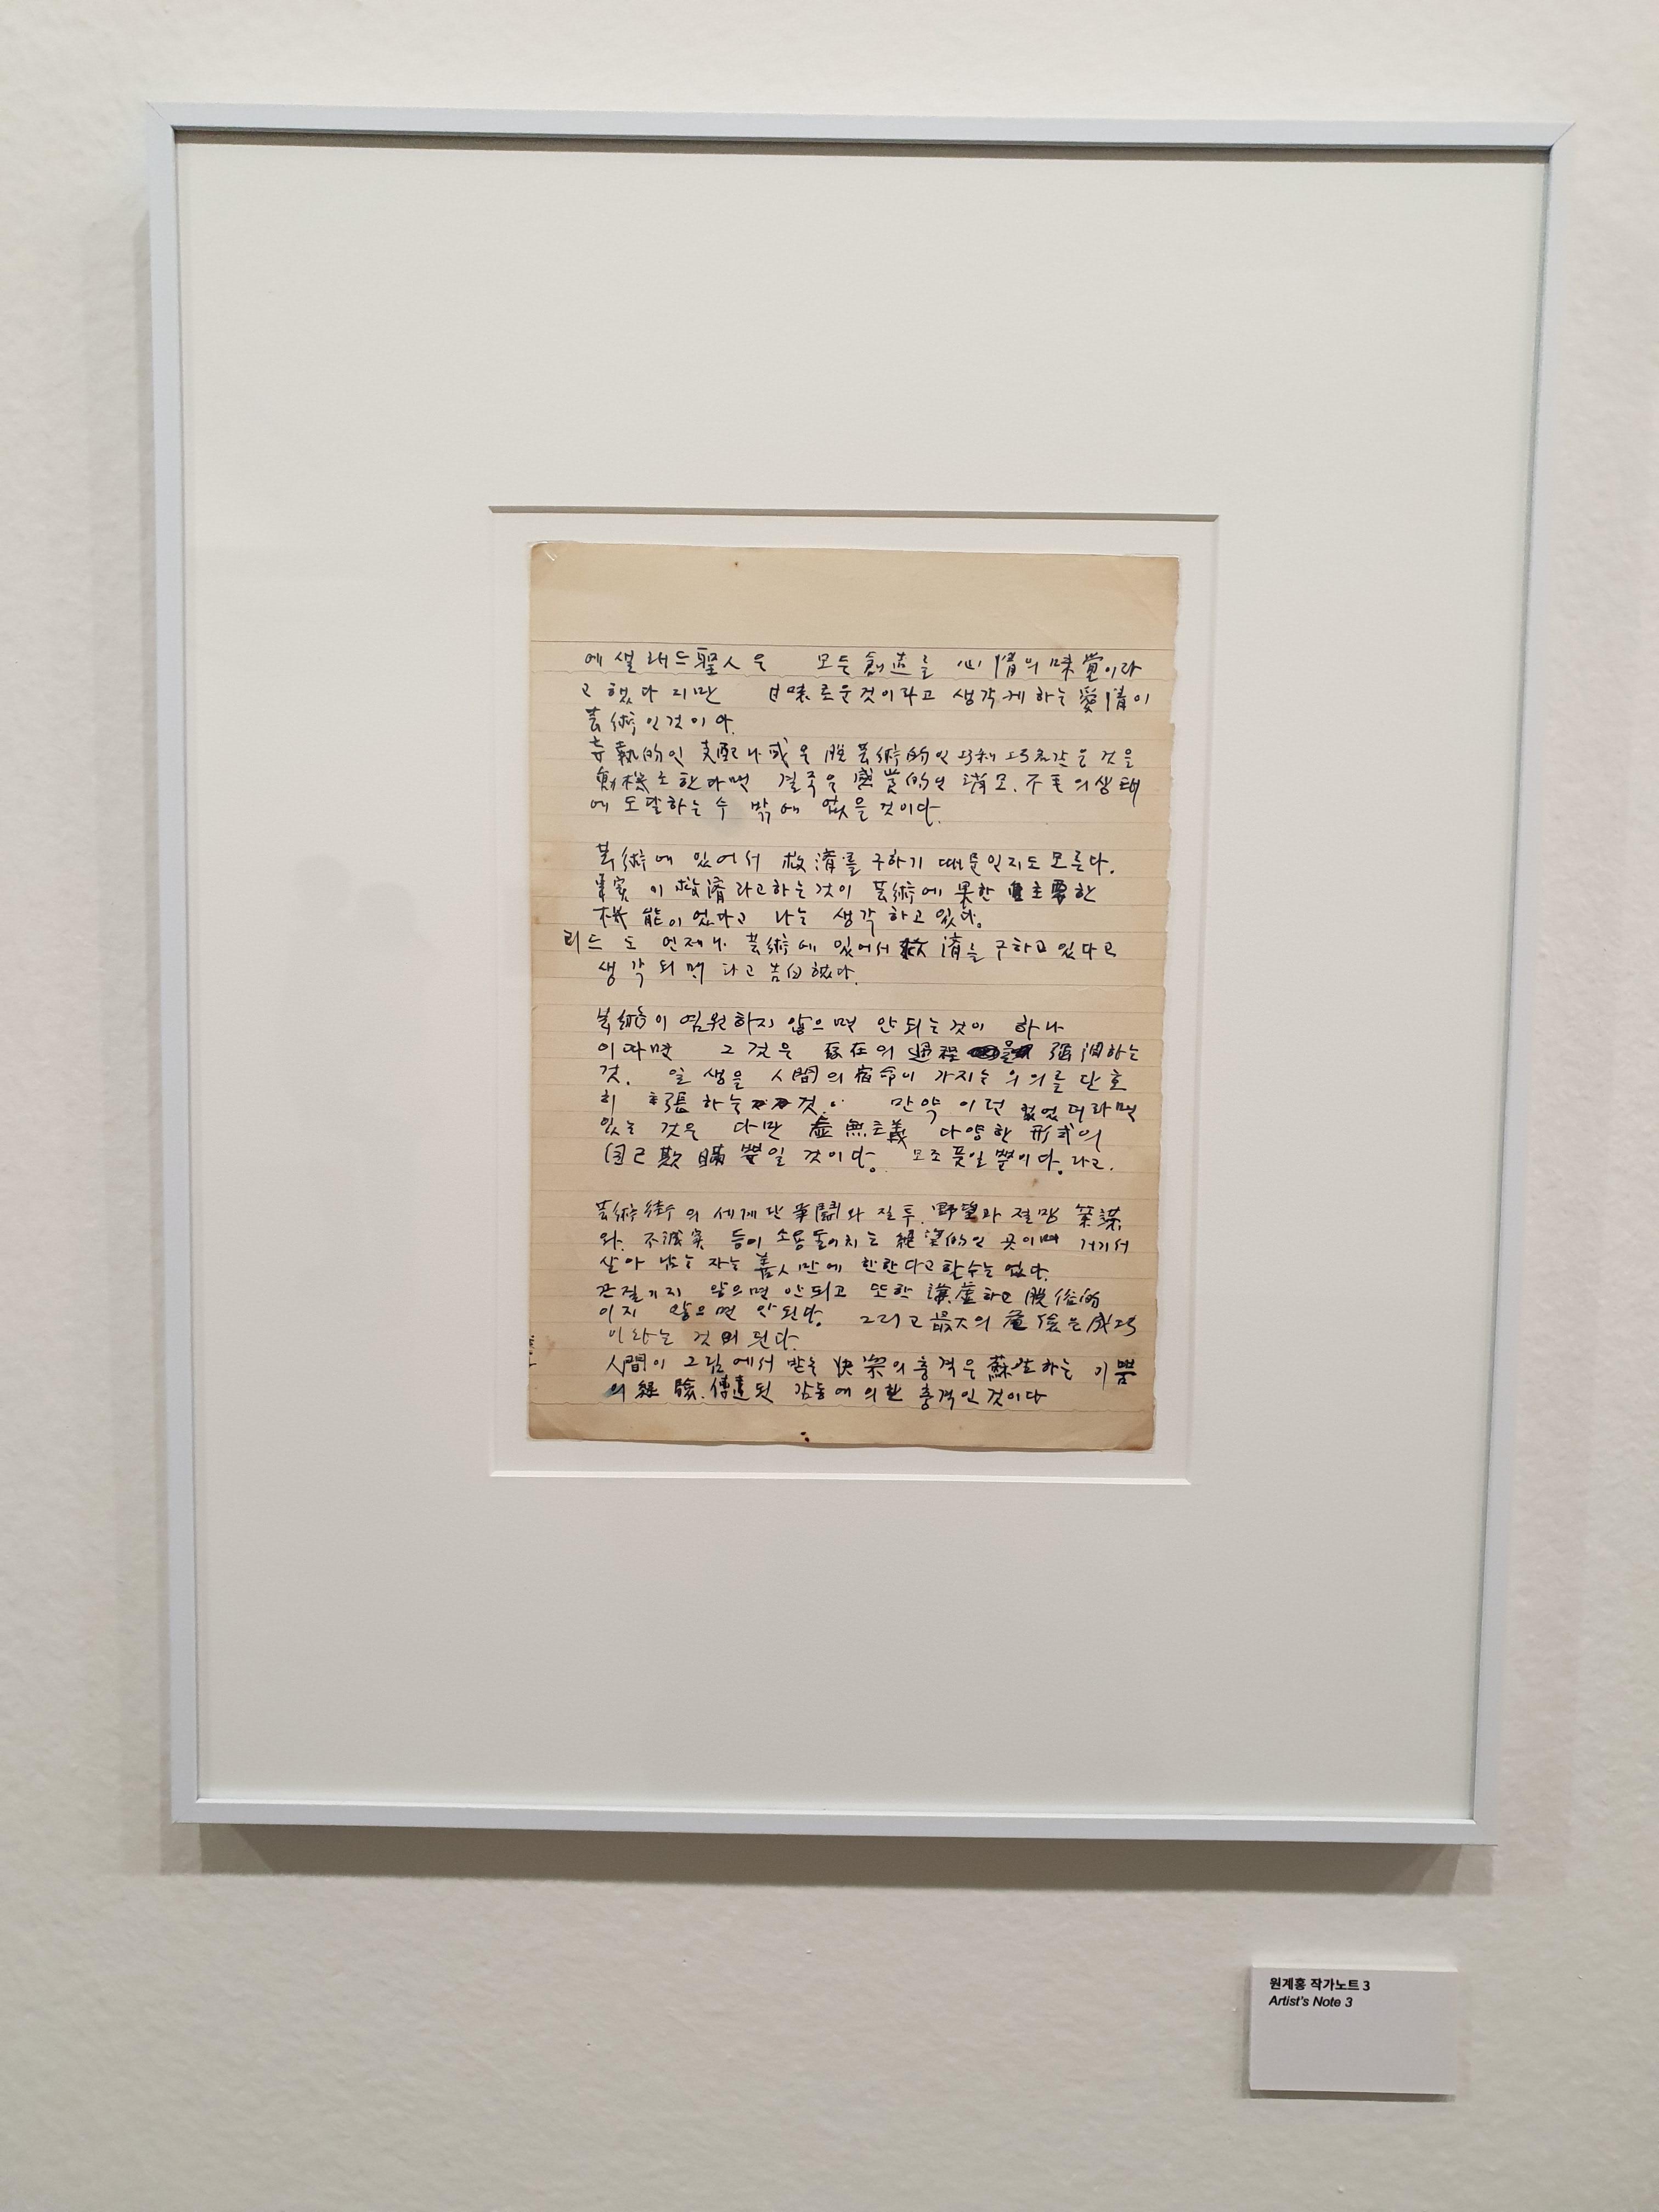 에셀레드聖人은 모든創造를 心情의味覺이라
고 했다지만 甘味로운것이라고 생각케하는愛情이
芸術인것이야.
的인 支配나或은 脫芸術的인 같은 것을
한다면 결국은 感覺的인 不毛의상태
에 도달하는수 밖에 없을 것이다.
芸術에 있어서 救済를 구하기 때문인지도 모른다.
事実 이 救済라고하는것이 芸術에 果한 重主要한
機能이었다고 나는 생각하고있다.
리드 도 언제나 芸術에 있어서 救済를구하고있다고
생각되면 다고 告白했다.
芸術이 염원하지 않으면 안되는것이 하나
이다면 그것은 存在의 過程 强調하는
것. 일생을 人間의宿命이 가지는 우의를 단호
히 主張하는 것. 만약 이런 것없더라면
있는 것은 다만 虛無主義 다양한 形式의
自己欺瞞뿐일 것이다. 모조품일뿐이다.라고.
芸術街의 세계란 争鬪와 질투. 野望과 절망 策謀
와 不誠実 등이 소용돌이치는 絕望的인 곳이며 거기서
살아 남는 자는 善人만에 한한다고할수는 없다.
끈질기지 않으면 안되고 또한 謙虛하고 脫俗的
이지 않으면 안된다. 그리고 最大의 危険은成功
이라는 것이 된다.
人間이 그림에서 받는 快楽의 충격은 蘇生하는 기쁨
의 経験. 傳達된 감동에 의한 충격인 것이다
원계홍 작가노트 3
Artist's Note 3